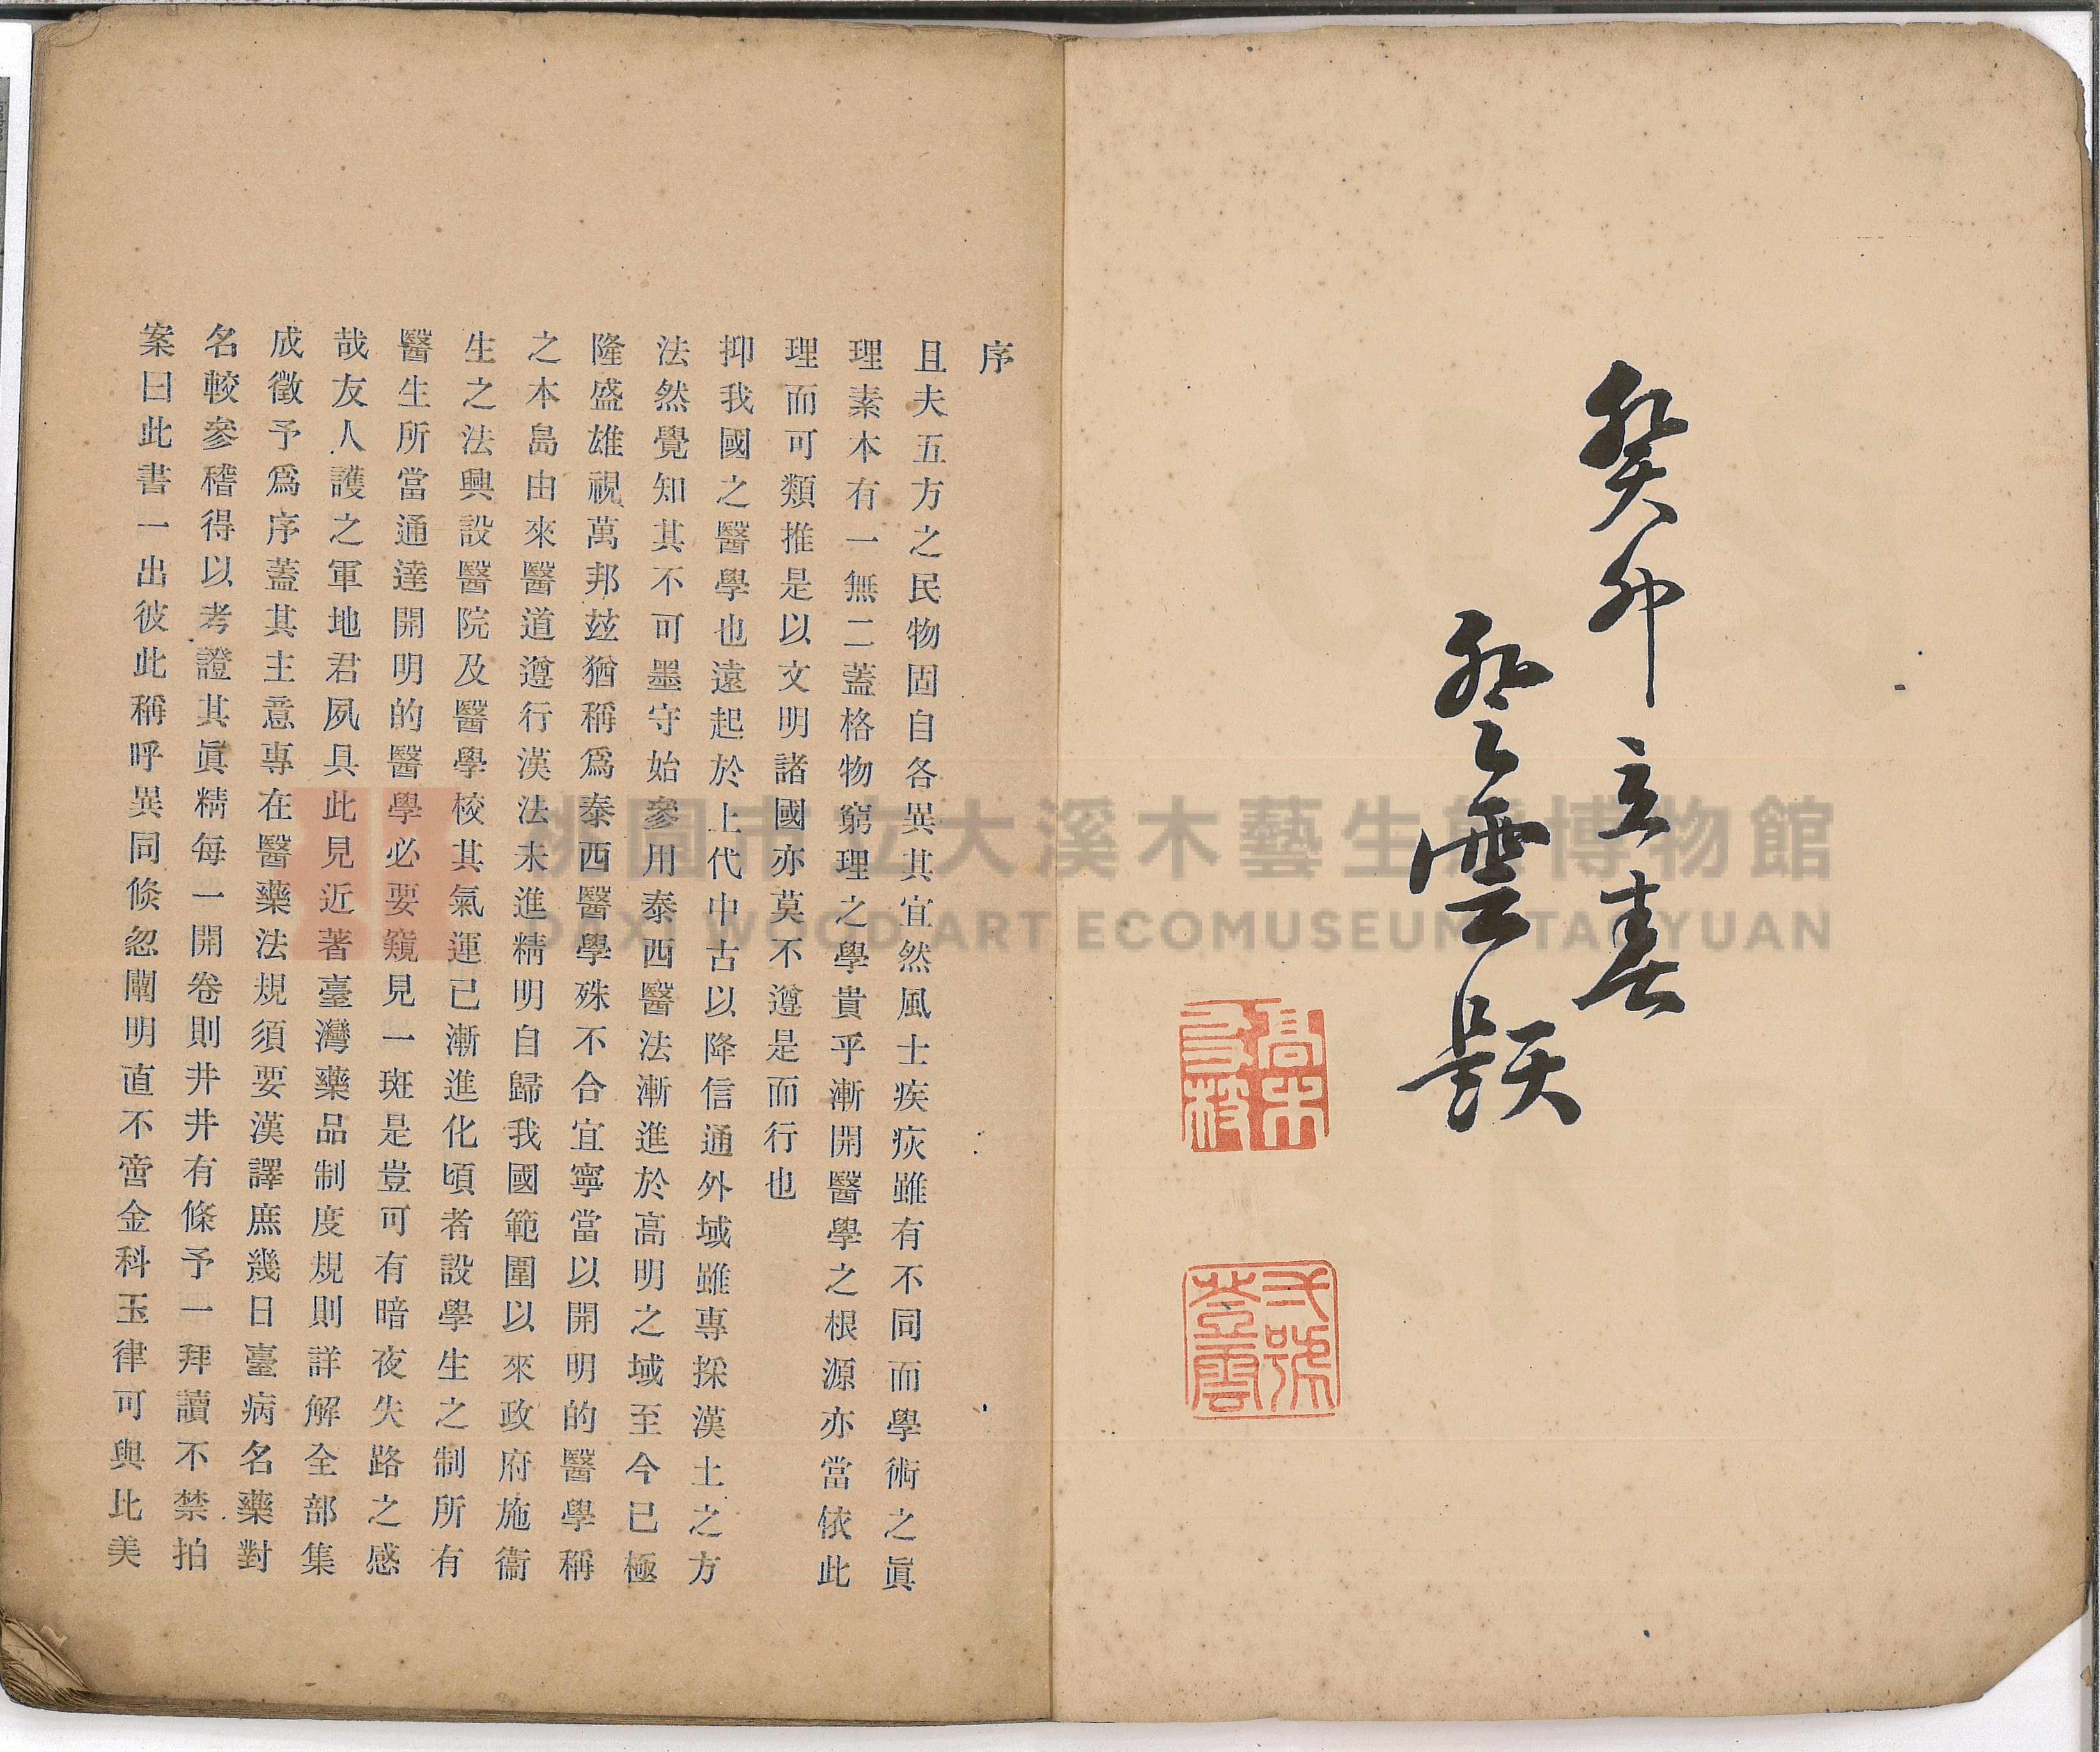 癸卯立春
登雲題
高木友枝
又號登雲
序
且夫五方之民物固自各異其宜然風土疾疢雖有不同而學術之眞
理素本有一無二蓋格物窮理之學貴乎漸開醫學之根源亦當依此
理而可類推是以文明諸國亦莫不遵是而行也
抑我國之醫學也遠起於上代中古以降信通外域雖專採漢土之方
法然覺知其不可墨守始參用泰西醫法漸進於高明之域至今已極
隆盛雄視萬邦茲猶稱爲泰西醫學殊不合宜寧當以開明的醫學稱
之本島由來醫道遵行漢法未進精明自歸我國範圍以來政府施衞
生之法興設醫院及醫學校其氣運已漸進化頃者設學生之制所有
醫生所當通達開明的醫學必要窺見一斑是豈可有暗夜失路之感
哉友人護之軍地君夙具此見近著臺灣藥品制度規則詳解全部集
成徵予爲序蓋其主意專在醫藥法規須要漢譯庶幾日臺病名藥對
名較參稽得以考證其眞精每一開卷則井井有條予一拜讀不禁拍
案曰此書一出彼此稱呼異同倐忽闡明直不啻金科玉律可與比美
桃園市立大溪木藝生態博物館
DAXI WOOD ART ECOMUSEUM, TAOYUAN